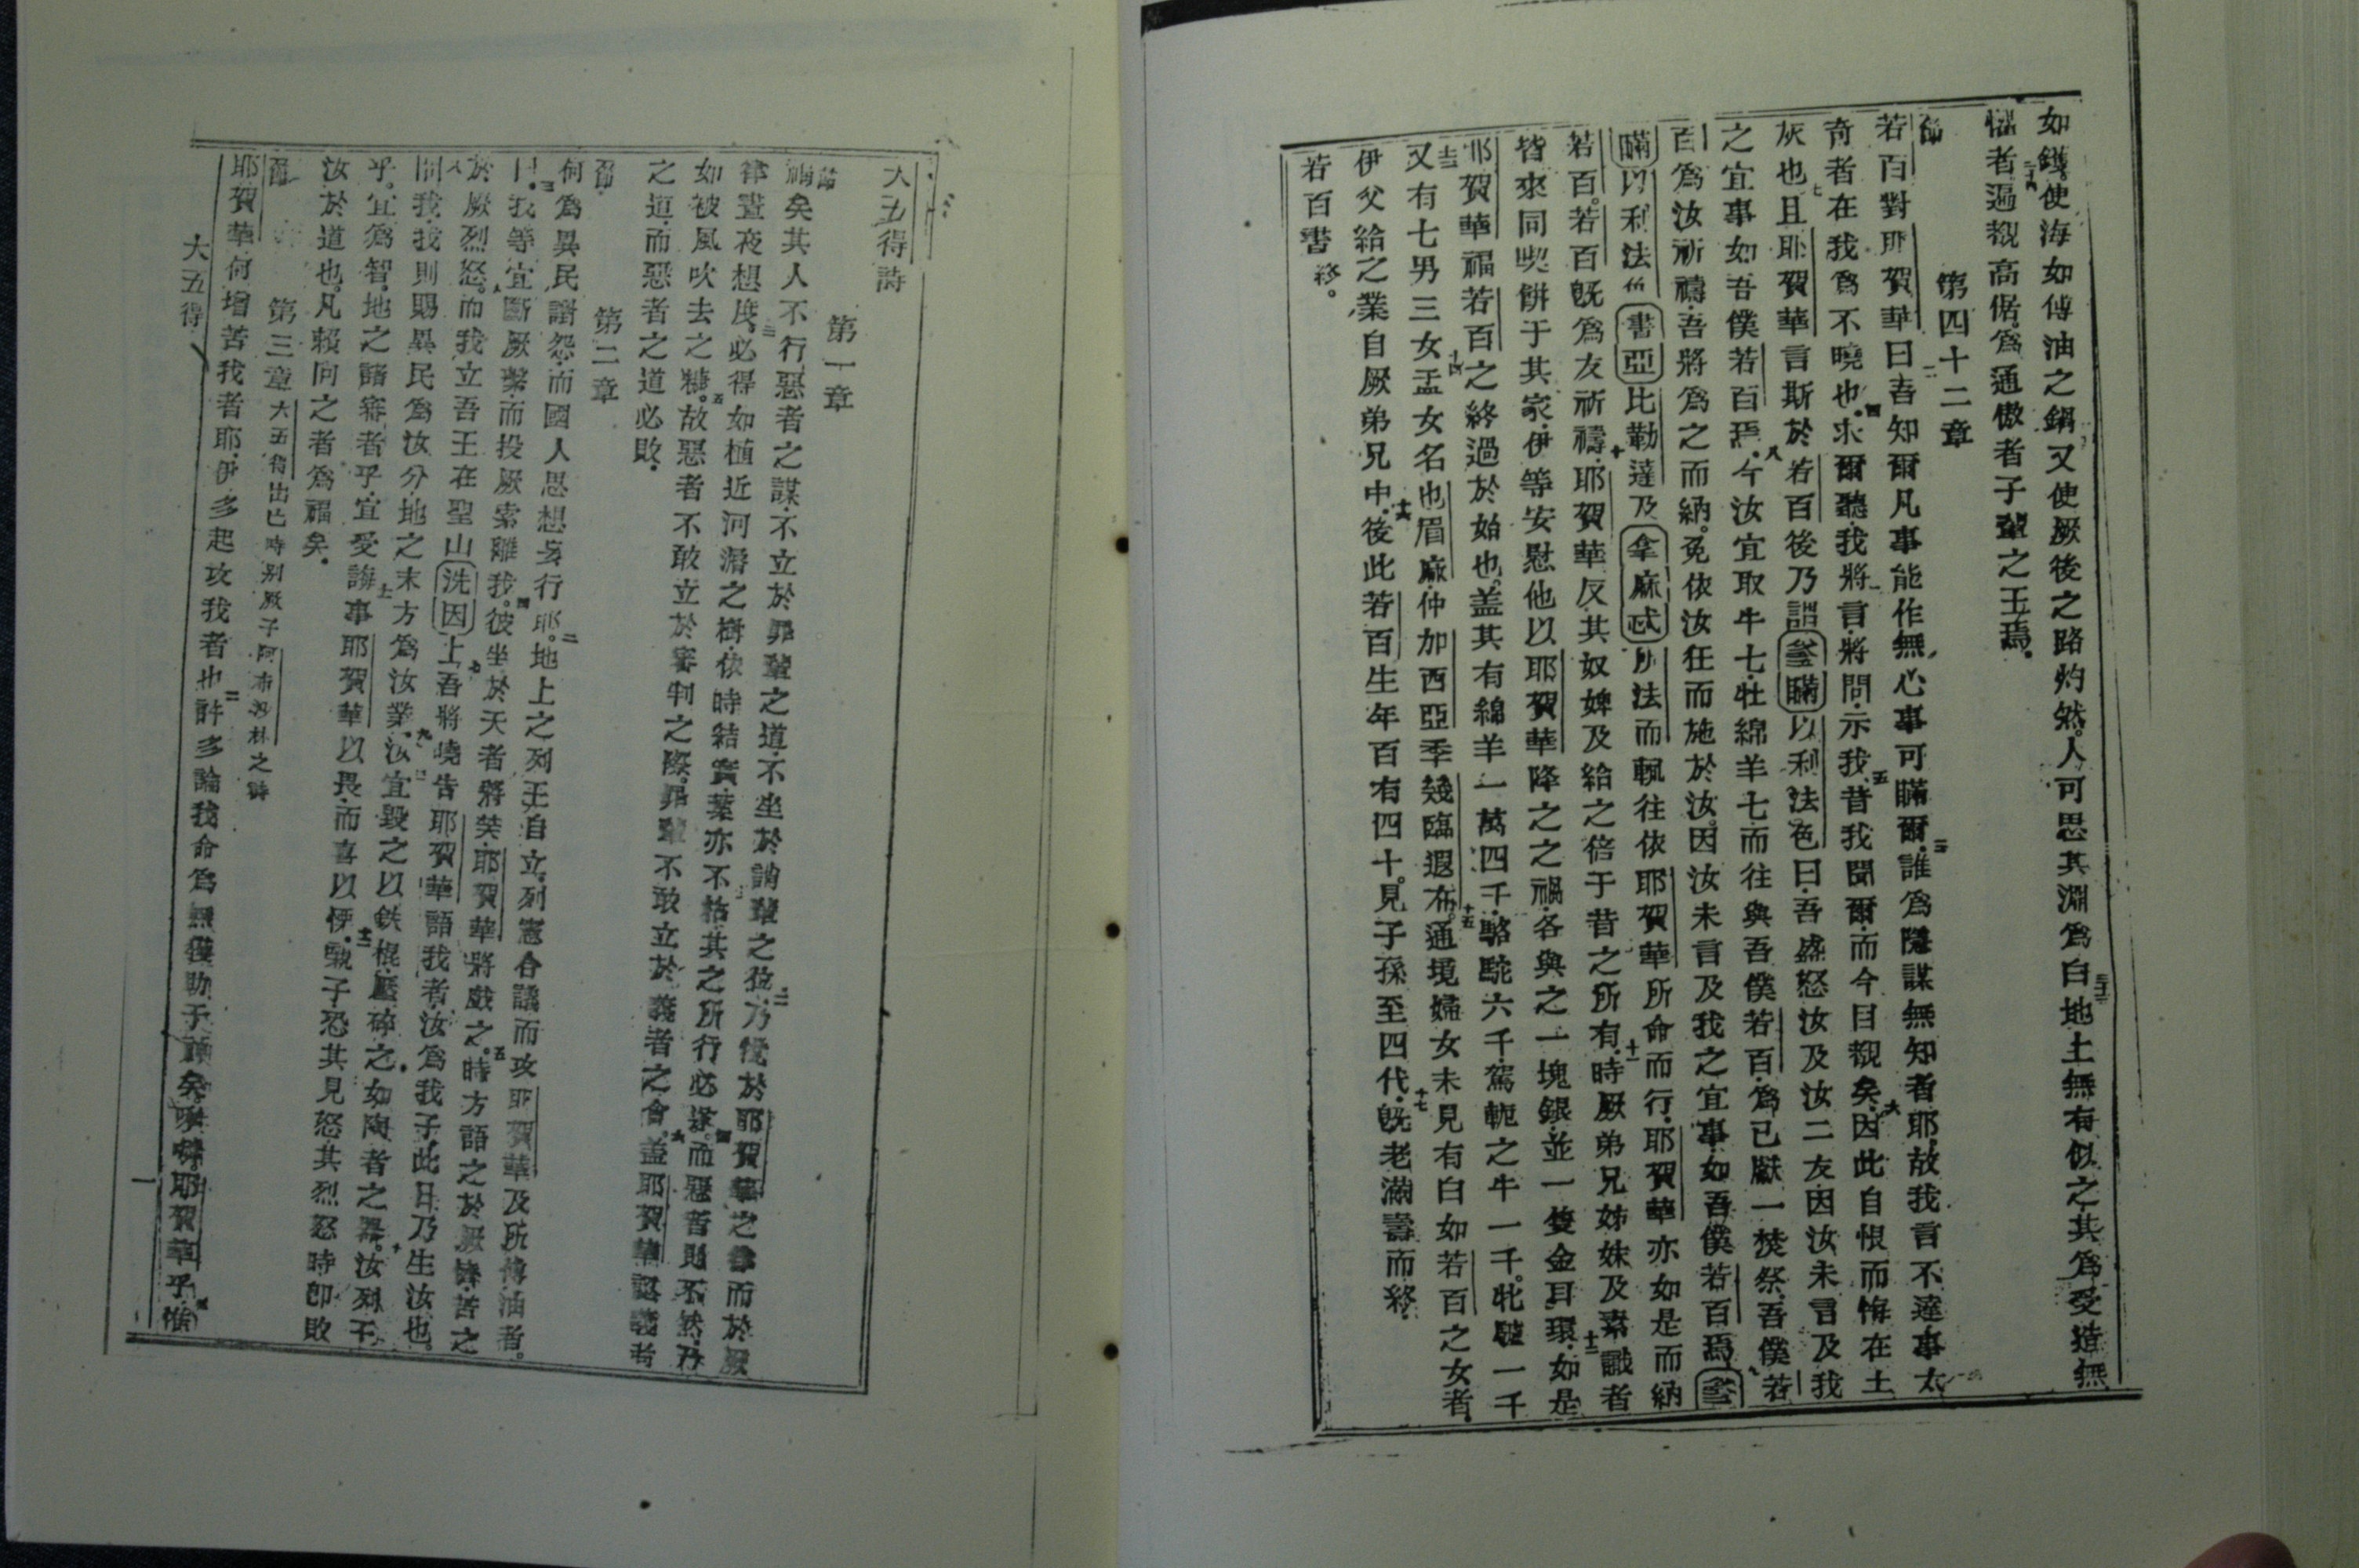 如鑊使海如傅油之鍋又使厥後之路灼然。人可思其淵為白地土無有似之其為受造無
懼者遍覩高倨。為通傲者子輩之王焉。
第四十二章
節
若百對耶賀華曰吾知爾凡事能作無心事可瞞爾誰為隱謀無知者耶故我言不達事太
奇者在我為不曉也。求爾聽我將言將問示我昔我聞爾而今目覩矣因此自恨而悔在土
灰也且耶賀華言斯於若百後乃謂以利法色曰吾盛怒汝及汝二友因汝未言及我
之宜事如吾僕若百焉。今汝宜取牛七牡綿羊七而往與吾僕若百為已獻一焚祭吾僕若
百為汝祈禱吾將為之而納。免依汝狂而施於汝因汝未言及我之宜事如吾僕若百焉
瞞以利法 書亞比勒達及拿麻忒所法而輒往依耶賀華所命而行耶賀華亦如是而納
若百。若百既為友祈禱耶賀華反其奴婢及給之倍于昔之所有時厥弟兄姊妹及素識者
皆來同喫餅于其家伊等安慰他以耶賀華降之之禍各與之一塊銀並一隻金耳環如是
耶賀華福若百之終過於始也。蓋其有綿羊一萬四千駱駝六千駕軛之牛一千。牝驢一千
又有七男三女孟女名也眉麻仲加西亞季幾臨遐布。通境婦女未見有白如若百之女者。
伊父給之業自厥弟兄中後此若百生年百有四十見子孫至四代既老滿壽而終
若百書終。
大五得詩
第一章
節
福矣其人不行惡者之謀不立於罪輩之道不坐於誚輩之位乃悅於耶賀華之律而於厥
律晝夜想度必得如植近河濱之樹依時結實葉亦不枯其之所行必遂。而惡者則不然乃
如被風吹去之糠。故惡者不敢立於審判之際罪輩不敢立於義者之會。蓋耶賀華認義者
之道而惡者之道必敗。
第二章
節
何為異民謂怨而國人思想妄行耶。地上之列王自立列憲合議而攻耶賀華及所傅油者。
曰我等宜斷厥繫而投厥索離我。彼坐於天者將笑耶賀華將戲之。時方語之於厥 苦之
於厥烈怒。而我立吾王在聖山洗因上吾將曉告耶賀華語我者汝為我子此日乃生汝也。
問我我則賜異民為汝分地之末方為汝業。汝宜毀之以鉄棍壓碎之如陶者之器。汝列王
乎宜為智地之諸審者乎宜受誨事耶賀華以畏而喜以悸。 子恐其見怒其烈怒時即敗
汝於道也。凡賴向之者為福矣。
第三章 大五得出亡時別厥子阿布沙林之詩
節
耶賀華何增苦我者耶伊多起攻我者也許多論我命為無獲助于 矣 耶賀華乎惟
大五得
一